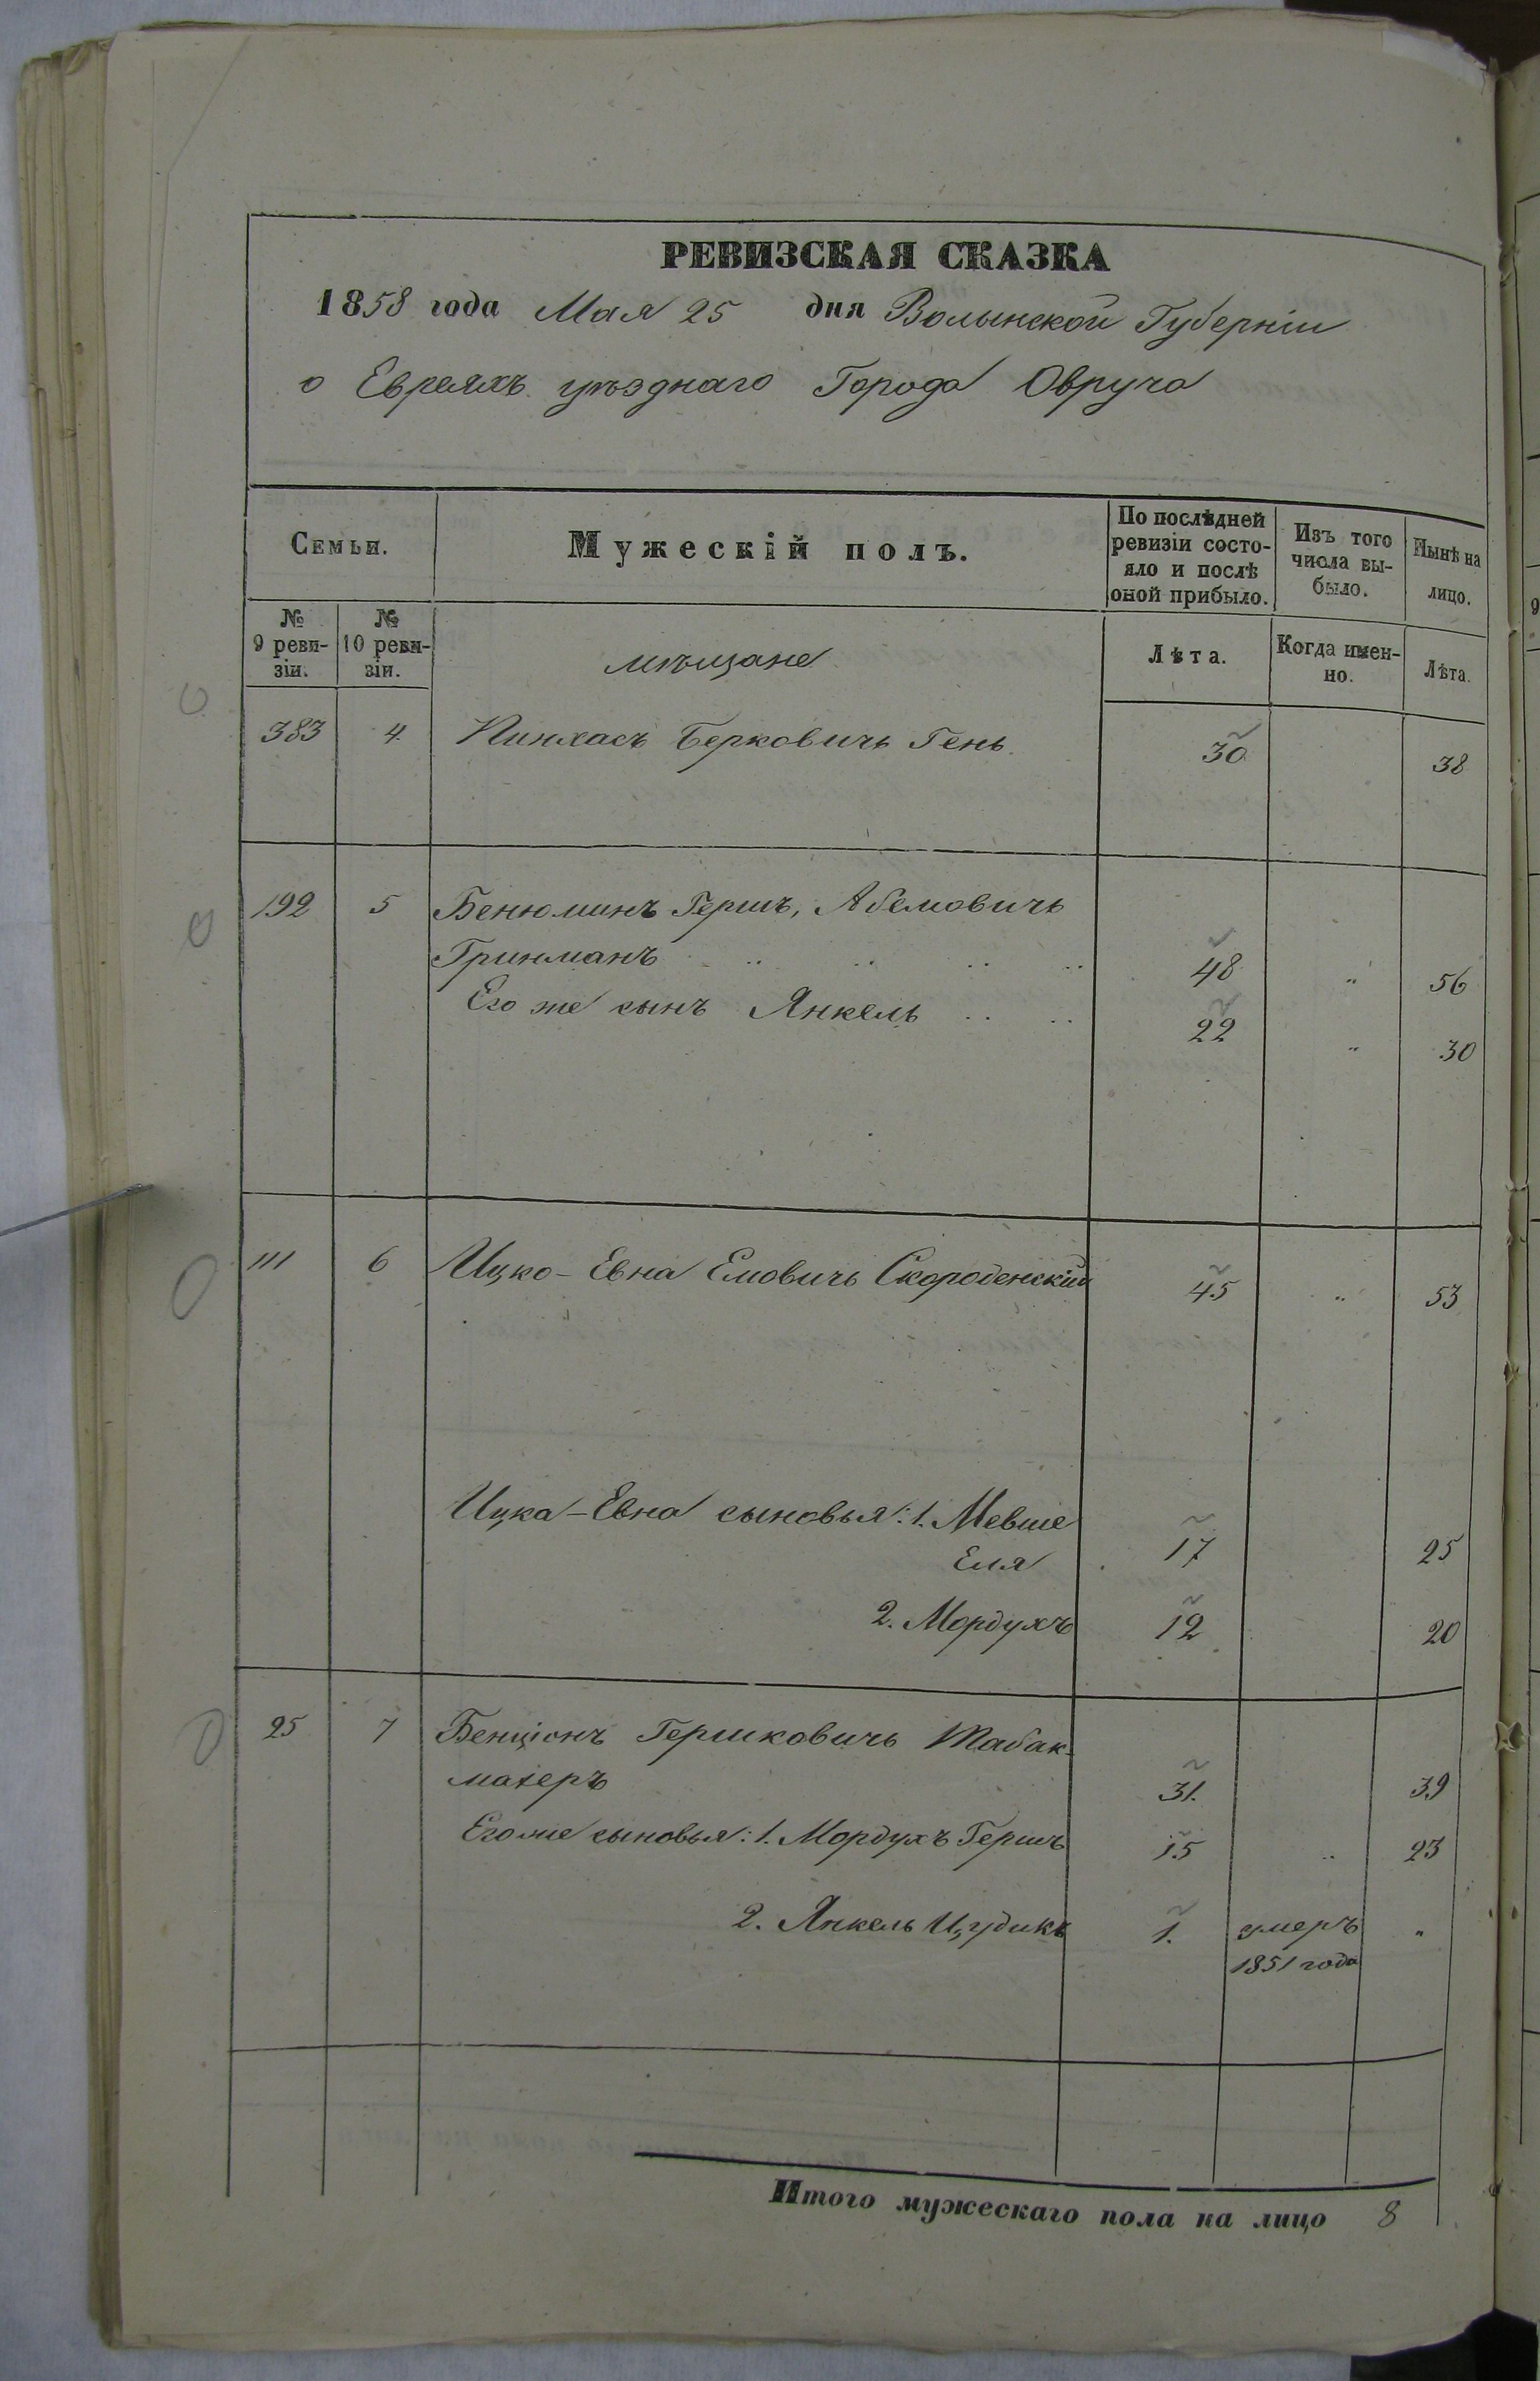 РЕВИЗСКАЯ СКАЗКА
1858 года Мая 25 дня Волынской Губерніи
о Евреяхъ уѣзднаго Города Овруча
Семьи.
Мужескій полъ.
По послѣдней
ревизіи состо-
яло и послѣ
оной прибыло.
Изъ того
числа вы-
было.
Нынѣ на
лицо.
№
9 реви-
зіи.
№
10 реви-
зіи.
мѣщане
Лѣта.
Когда имен-
но.
Лѣта.
383 4 Пинхасъ Берковичъ Гень 30 38
192 5 Бенюминъ Гершъ, Абелиовичъ
Гринманъ .. .. .. .. 48 " 56
Его же сынъ Янкель .. .. 22 " 30
111 6 Ицко-Евна Елиовичъ Скороденскій 45 " 53
Ицка-Евна сыновья: 1. Мевше
Еля 17 25
2. Мордухъ 12 20
25 7 Бенціонъ Гершковичъ Табак-
махеръ 31. 39
Его же сыновья: 1. Мордухъ Гершъ 15 " 23
2. Янкель Иудикъ 1. умеръ "
1851 года
Итого мужескаго пола на лицо 8